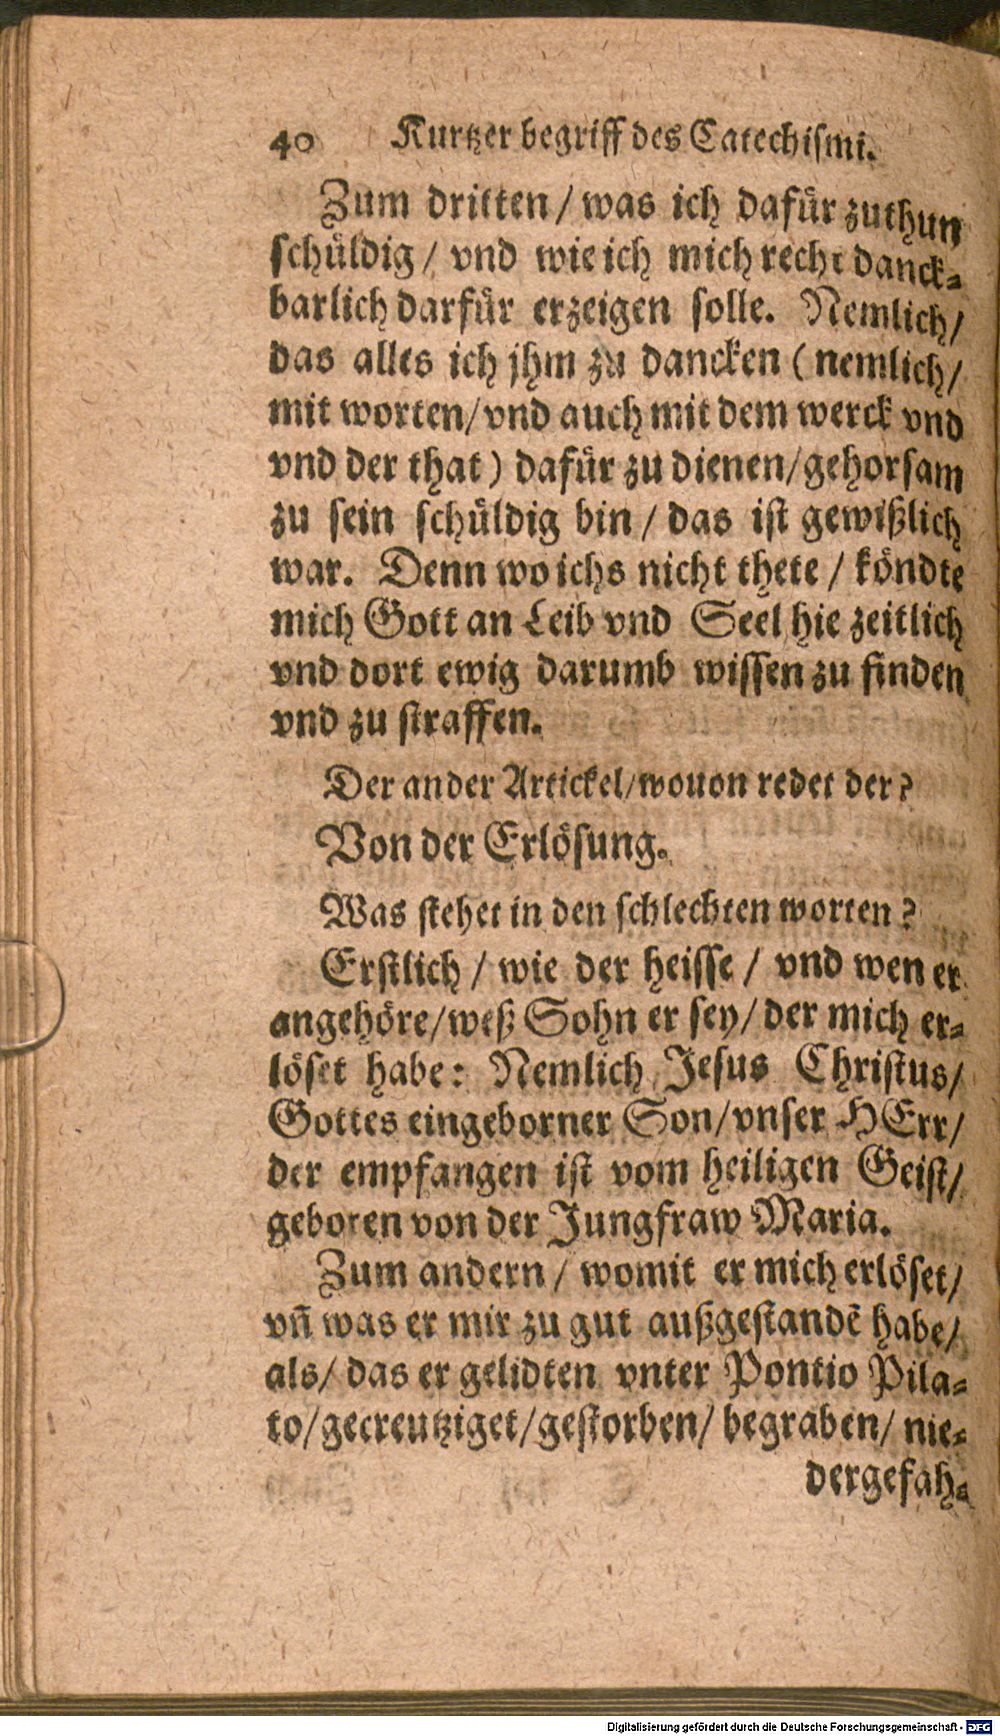 40 Kurtzer begriff des Catechismi.
Zum dritten / was ich dafür zuthun
schüldig / vnd wie ich mich recht danck-
barlich darfür erzeigen solle. Nemlich /
das alles ich jhm zu dancken (nemlich /
mit worten / vnd auch mit dem werck vnd
vnd der that) dafür zu dienen / gehorsam
zu sein schüldig bin / das ist gewißlich
war. Denn wo ichs nicht thete / köndte
mich Gott an Leib vnd Seel hie zeitlich
vnd dort ewig darumb wissen zu finden
vnd zu straffen.
Der ander Artickel / wouon redet der?
Von der Erlösung.
Was stehet in den schlechten worten?
Erstlich / wie der heisse / vnd wen er
angehöre / weß Sohn er sey / der mich er-
löset habe: Nemlich Jesus Christus /
Gottes eingeborner Son / vnser HErr /
der empfangen ist vom heiligen Geist /
geboren von der Jungfraw Maria.
Zum andern / womit er mich erlöset /
vñ was er mir zu gut außgestandẽ habe /
als / das er gelidten vnter Pontio Pila-
to / gecreutziget / gestorben / begraben / nie-
dergefah-
Digitalisierung gefördert durch die Deutsche Forschungsgemeinschaft - DFG